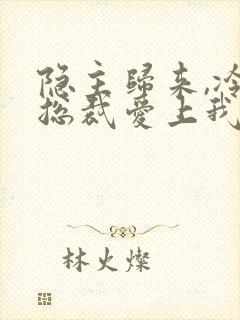 隐主歸来,冷
总裁爱上我
林火燦